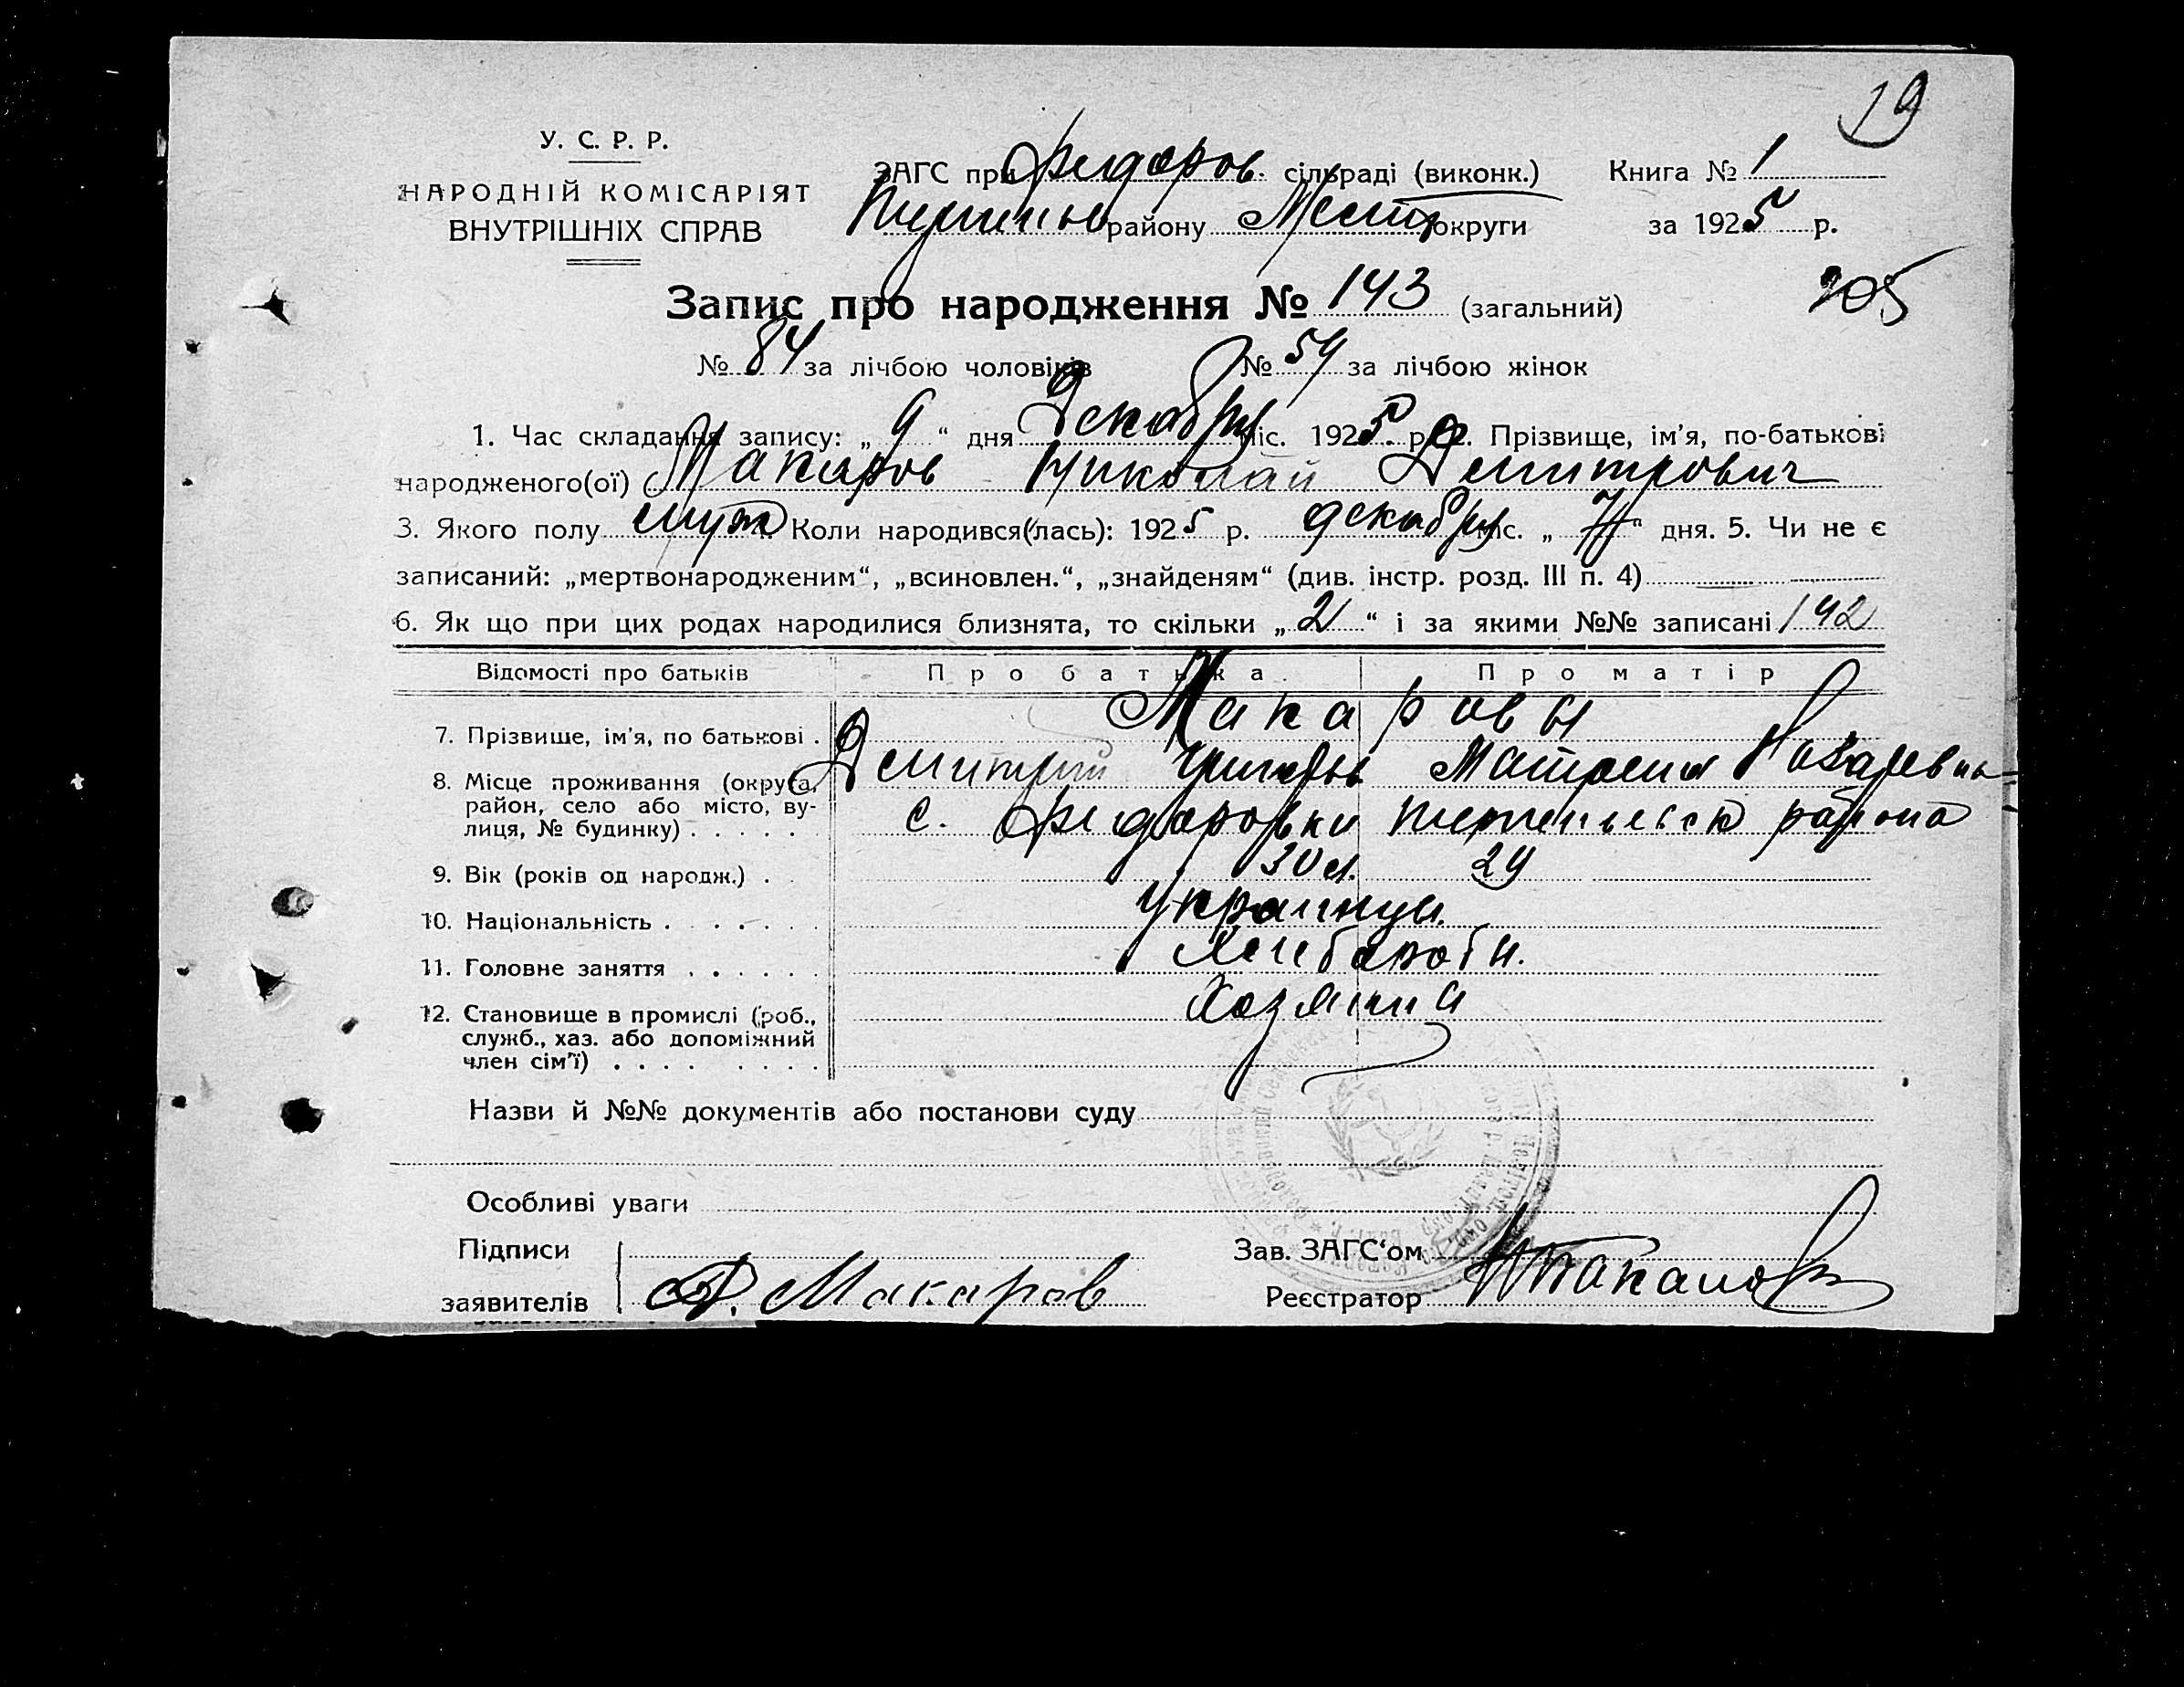 19
У. С. Р. Р.
НАРОДНІЙ КОМІСАРІЯТ
ВНУТРІШНІХ СПРАВ
ЗАГС при Федоров. сільраді (виконк.) Книга № 1
району округи за 1925 р.
Запис про народження № 143 (загальний)
205
№ 84 за лічбою чоловіків № 59 за лічбою жінок
1. Час складання запису: „ 9 “ дня Декабря міс. 1925 р. 2. Прізвище, ім'я, по-батькові
народженого(ої) Макаров Николай Демитрович
3. Якого полу муж Коли народився(лась): 1925 р. декабря міс. „ 7 “ дня. 5. Чи не є
записаний: „мертвонародженим“, „всиновлен.“, „знайденям“ (див. інстр. розд. III п. 4)
6. Як що при цих родах народилися близнята, то скільки „ 2 “ і за якими №№ записані 142
Відомості про батьків Про батька Про матір
7. Прізвище, ім'я, по батькові Макаровы
Демитрий Григорьев Матрена Назаревна
8. Місце проживання (округа,
район, село або місто, ву-
лиця, № будинку) с. Федоровки района
9. Вік (років од народж.) 30 л. 29
10. Національність Украинцы
11. Головне заняття Хлебороби.
12. Становище в промислі (роб.,
служб., хаз. або допоміжний
член сім'ї) Хозяина
Назви й №№ документів або постанови суду
Особливі уваги
Підписи
заявителів Д. Макаров
Зав. ЗАГС'ом
Реєстратор